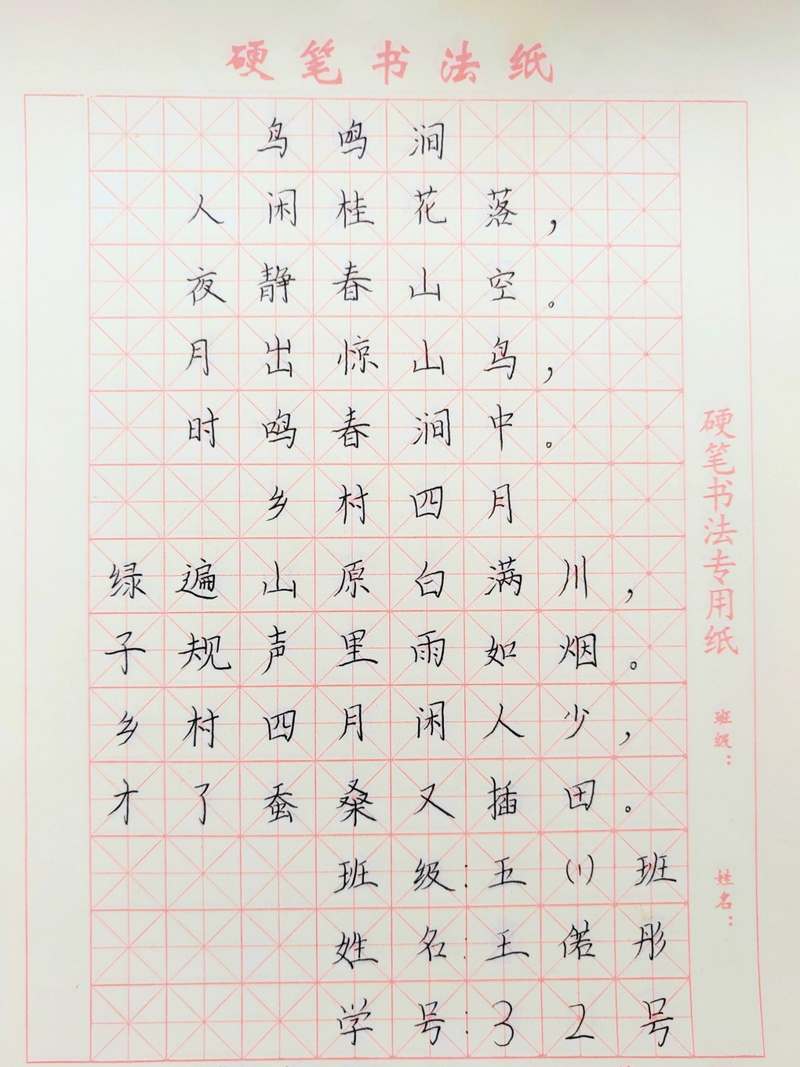 硬笔书法纸
鸟鸣涧
人闲桂花落，
夜静春山空。
月出惊山鸟，
时鸣春涧中。
乡村四月
绿遍山原白满川，
子规声里雨如烟。
乡村四月闲人少，
才了蚕桑又插田。
班级：五（1）班
姓名：王偌彤
学号：32号
硬笔书法专用纸
班级：
姓名：